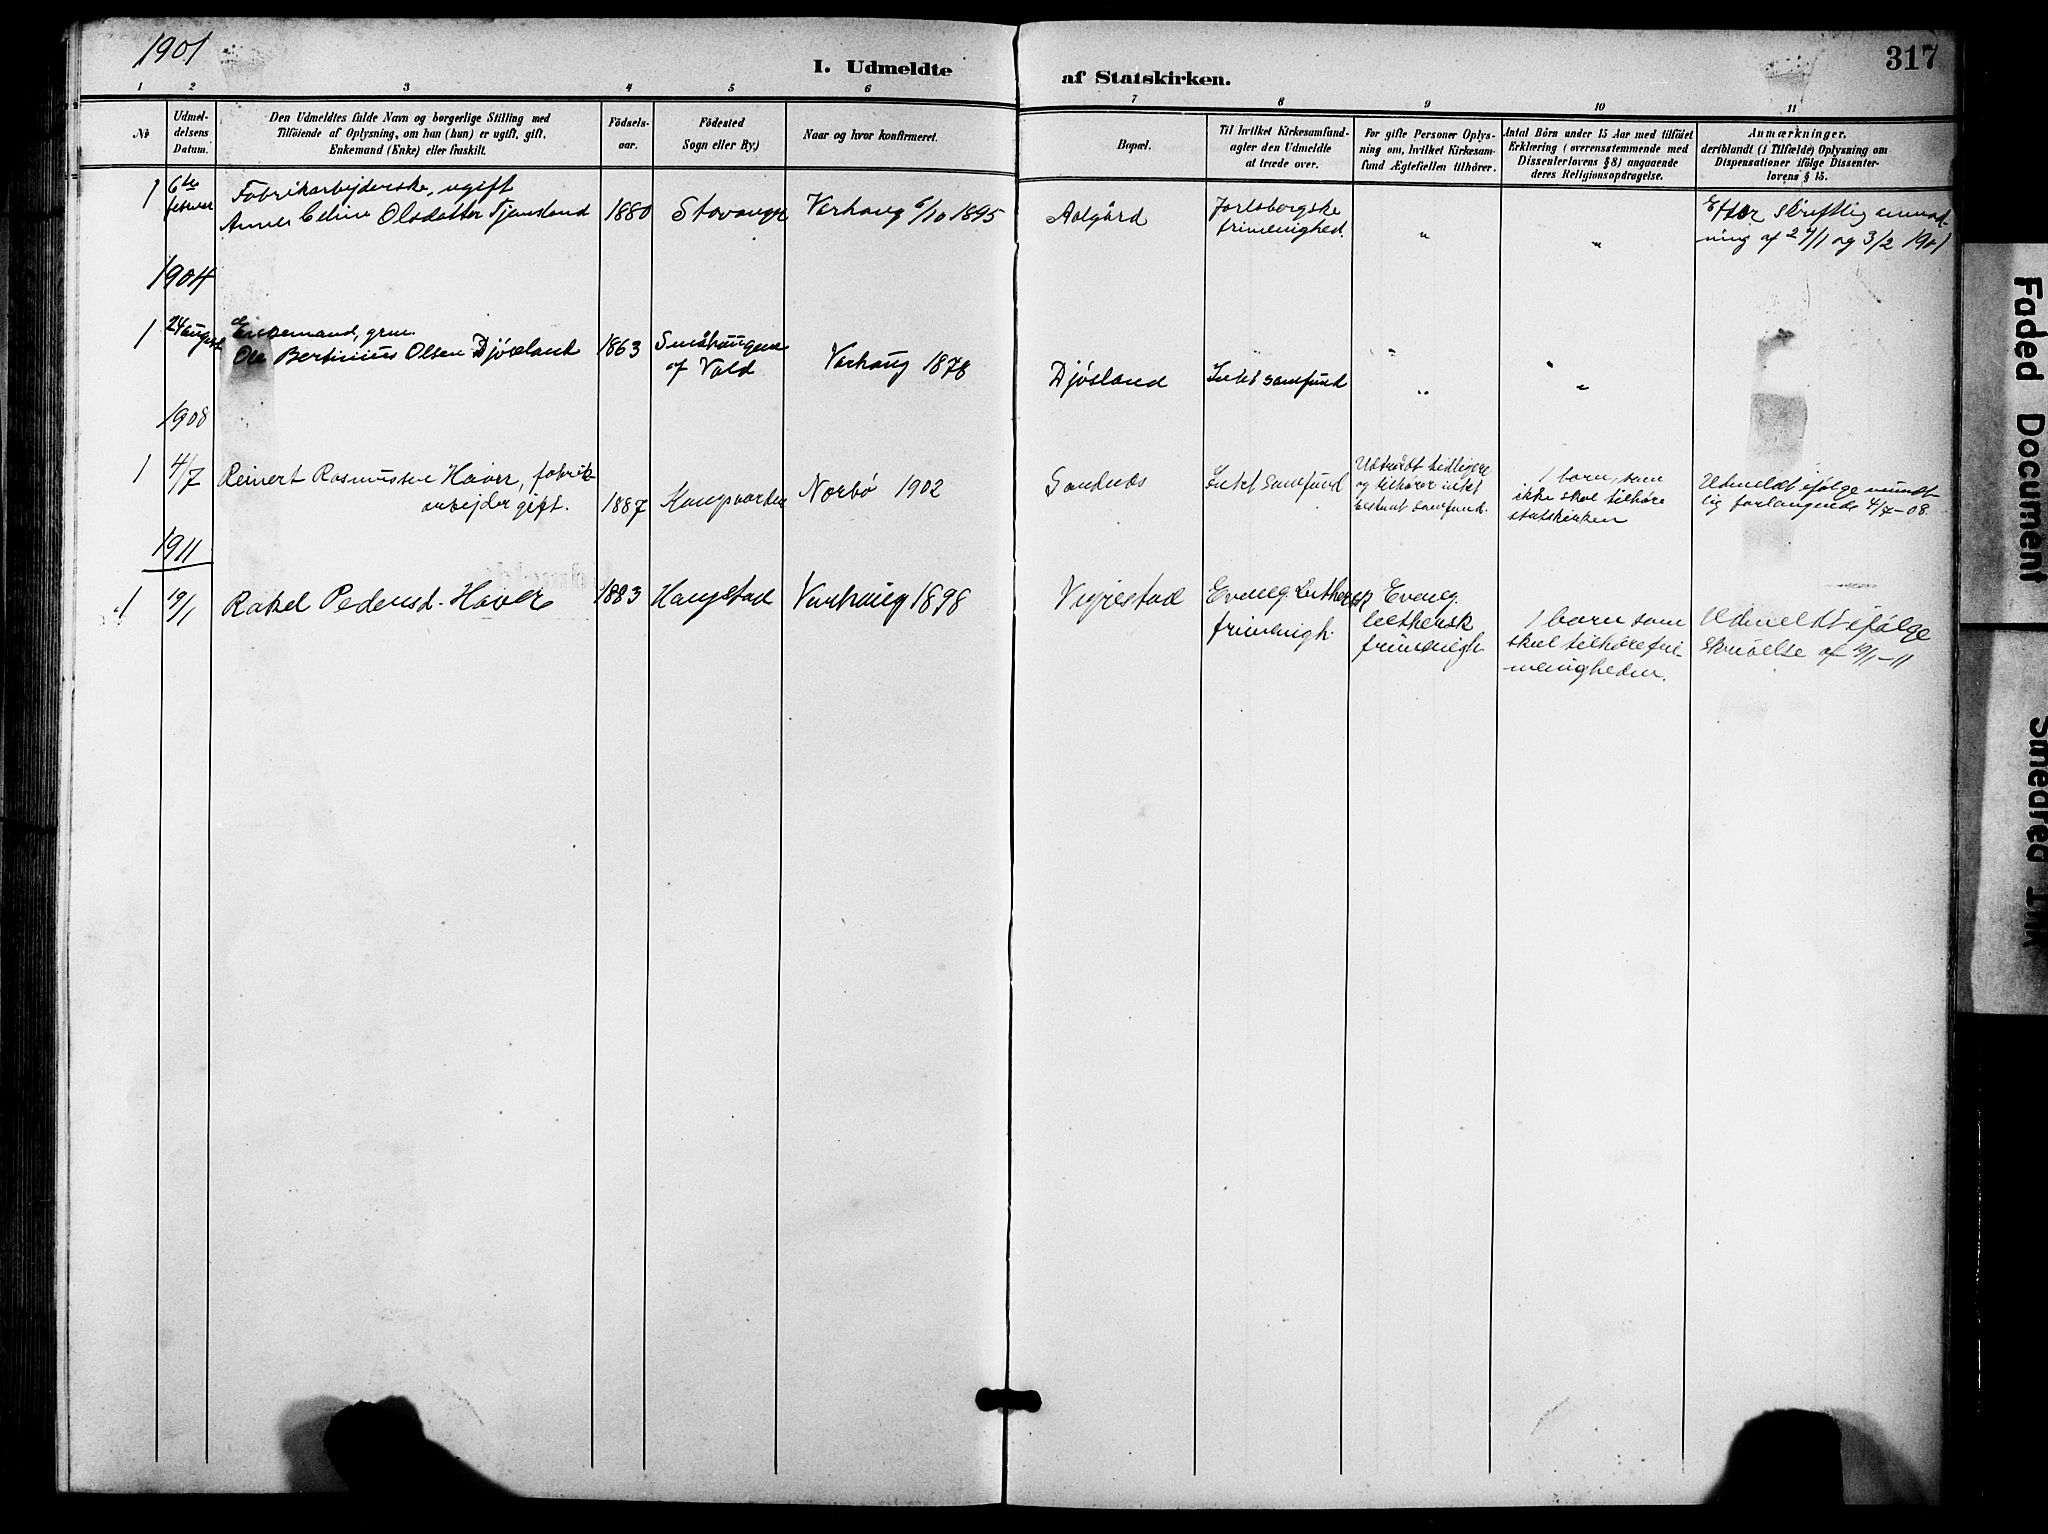 1901
317
I. Udmeldte af Statskirken.
1 2 3 4 5 6 7 8 9 10 11
No
Udmel-
delsens
Datum.
Den Udmeldtes fulde Navn og borgerlige Stilling med
Tilföiende af Oplysning, om han (hun) er ugift, gift,
Enkemand (Enke) eller fraskilt.
Födsels-
aar.
Födested
Sogn eller By.)
Naar og hvor konfirmeret.
Bopæl.
Til hvilket Kirkesamfund-
agter den Udmeldte
at træde over.
For gifte Personer Oplys-
ning om, hvilket Kirkesam-
fund Ægtefællen tilhörer.
Antal Börn under 15 Aar med tilföiet
Erklæring (overensstemmende med
Dissenterlovens § 8) angaaende
deres Religionsopdragelse.
Anmærkninger,
deriblandt (i Tilfælde) Oplysning om
Dispensationer ifölge Dissenter-
lovens § 15.
1
6te
februar
Fabrikarbejderske, ugift
Anna Celine Olsdatter Tjensland
1880
Stavanger
Varhaug 6/10 1895
Aalgård
Jarlsbergske
frimenighed.
"
"
Efter skriftlig anmod-
ning af 27/1 og 3/2 1901
1904
1
24 august
Enkemand, grm.
Ole Bertinius Olsen Djøsland
1863
Småhaugene
af Vold
Varhaug 1878
Djøsland
Intet samfund
"
"
1908
1
4/7
Reinert Rasmussen Haver, fabrik-
arbejder gift.
1887
Nærbø 1902
Sandnæs
Intet samfund
Udtrådt tidligere
og tilhører intet
bestemt samfund.
1 barn, som
ikke skal tilhøre
statskirken
Udmeldt ifølge mundt-
lig forlangende 4/7-08.
1911
1
19/1
Rakel Pedersd. Haver
1883
Haugstad
Varhaug 1898
Vigrestad
Evang. Luthersk
frimenigh.
Evang.
luthersk
frimenigh.
1 barn som
skal tilhøre fri-
menigheden.
Udmeldt ifølge
skrivelse af 19/1-11
Faded Document
Smeared Ink